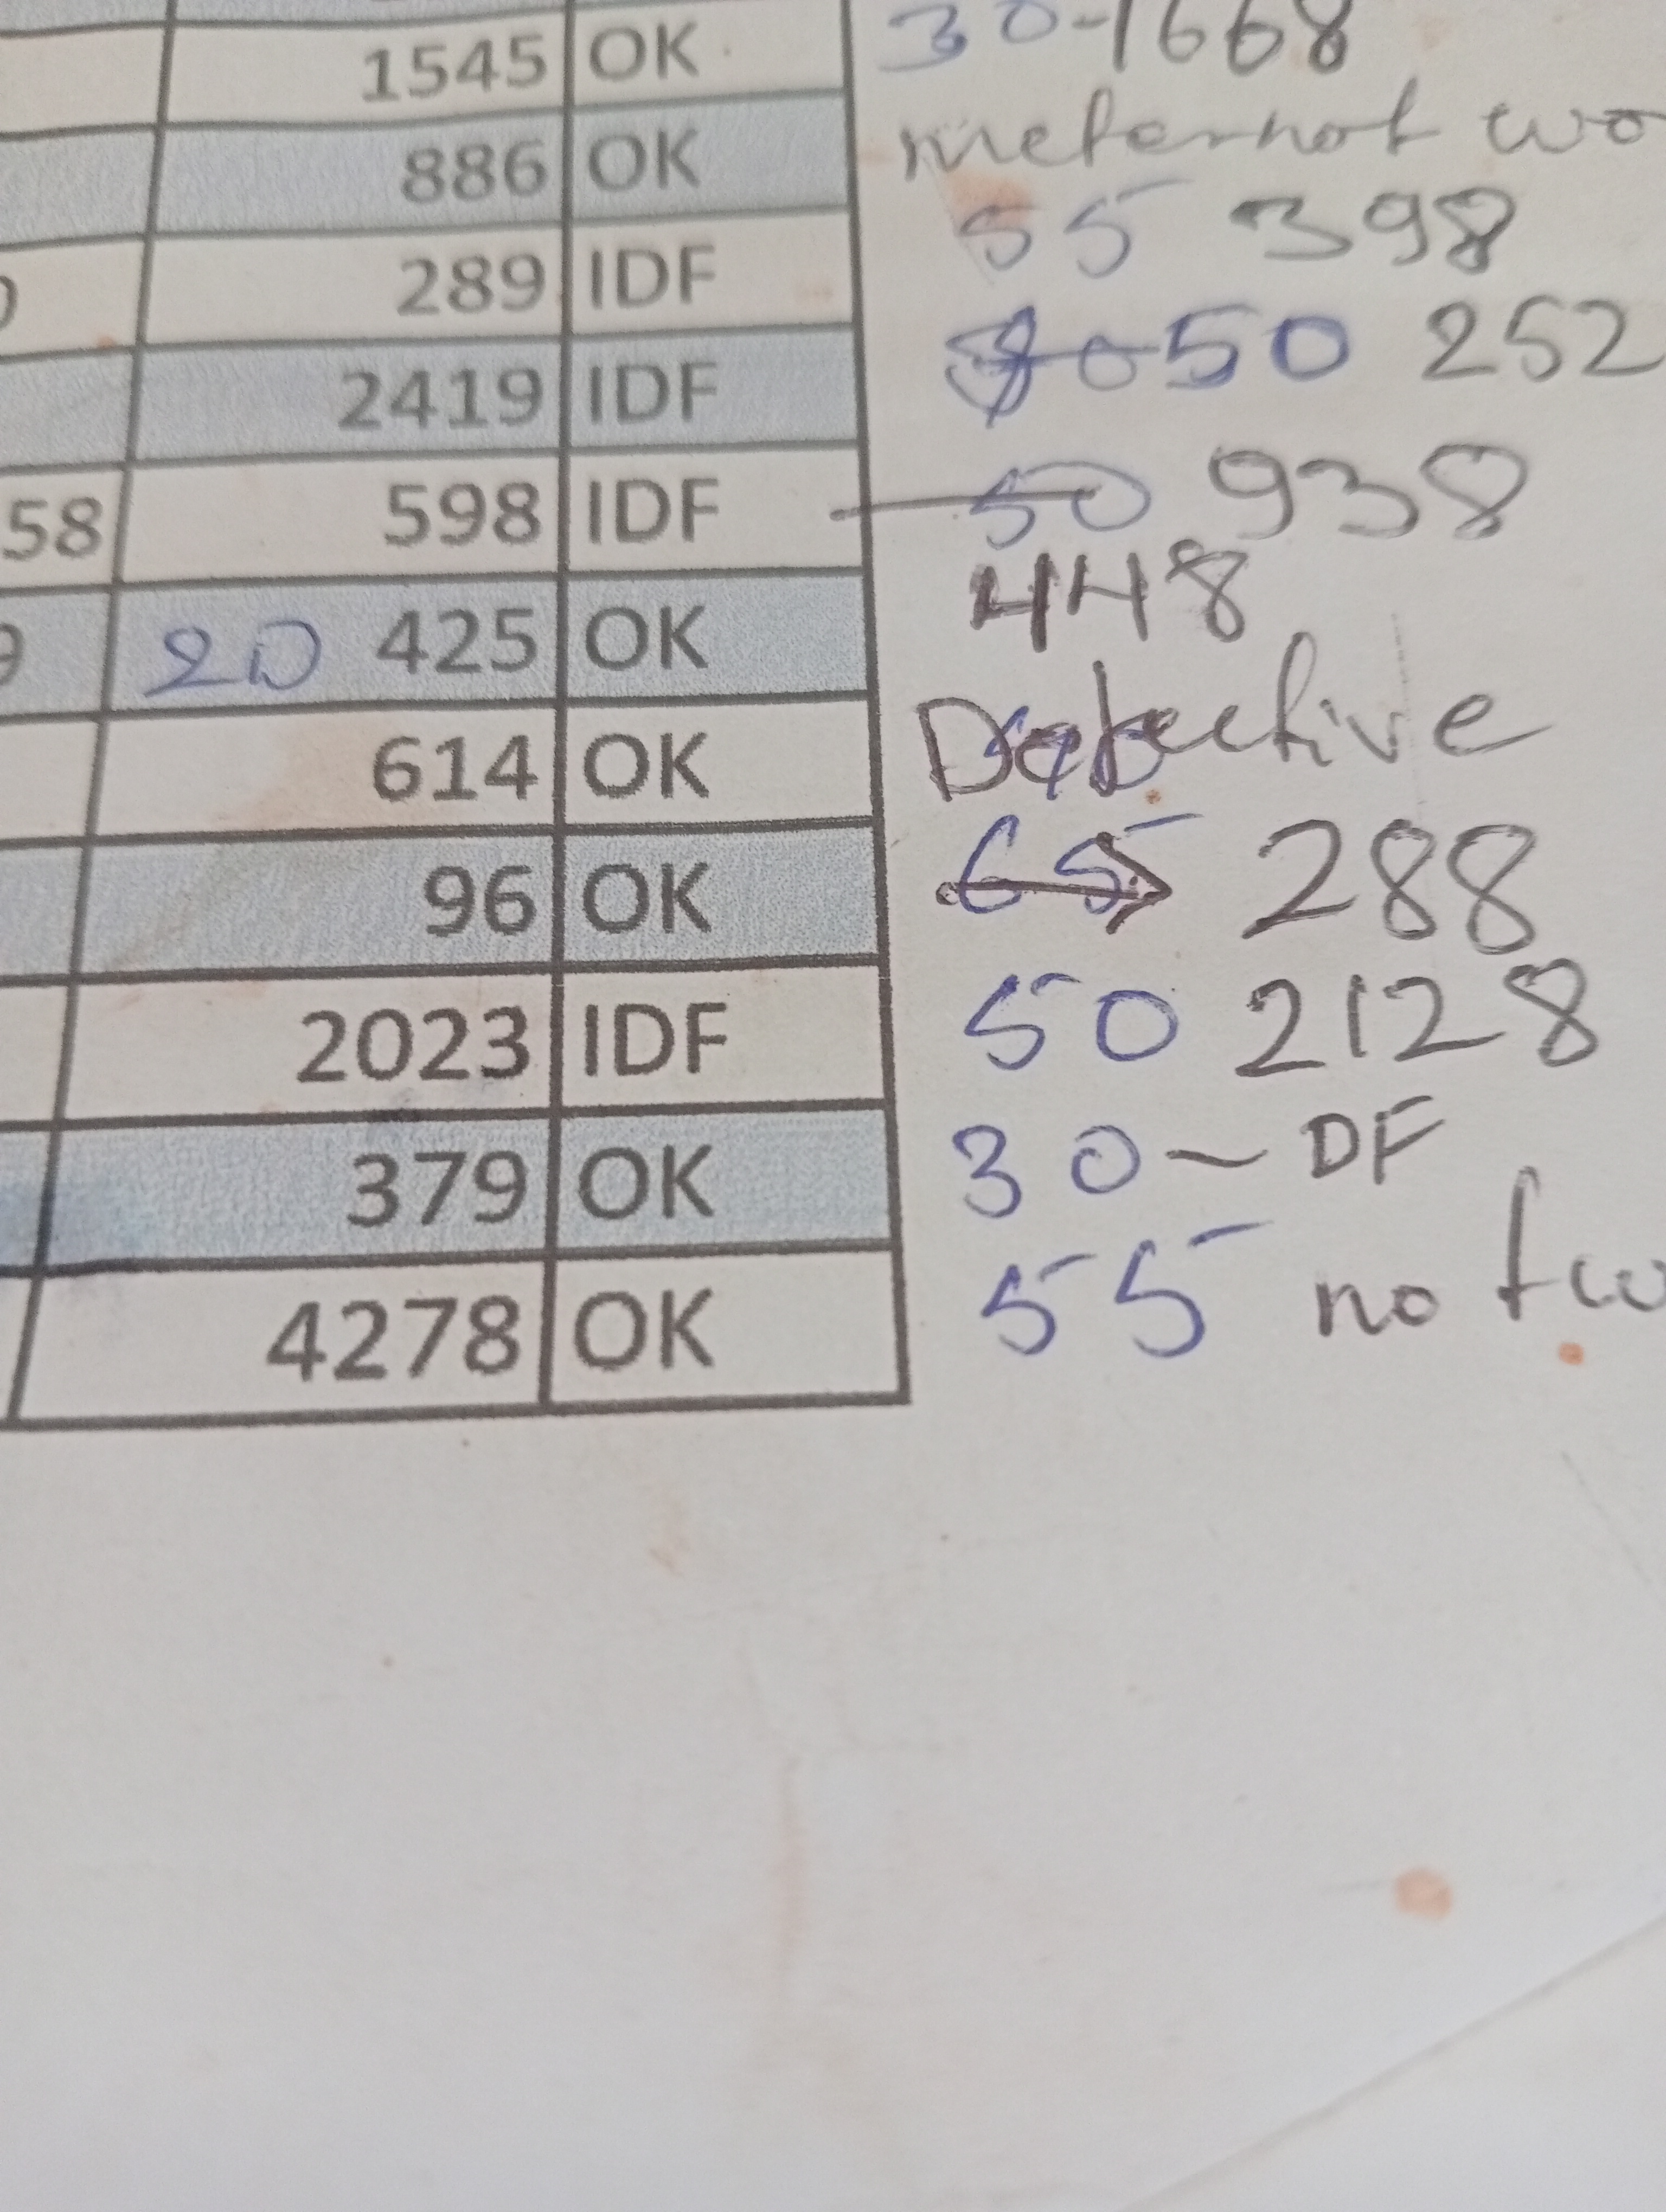 1545 OK 30-1668
886 OK meter not wo
289 IDF 55 398
2419 IDF 50 252
58 598 IDF 50 938
20 425 OK 448
614 OK Defective
96 OK 65 288
2023 IDF 50 2128
379 OK 30 - DF
4278 OK 55 not wo